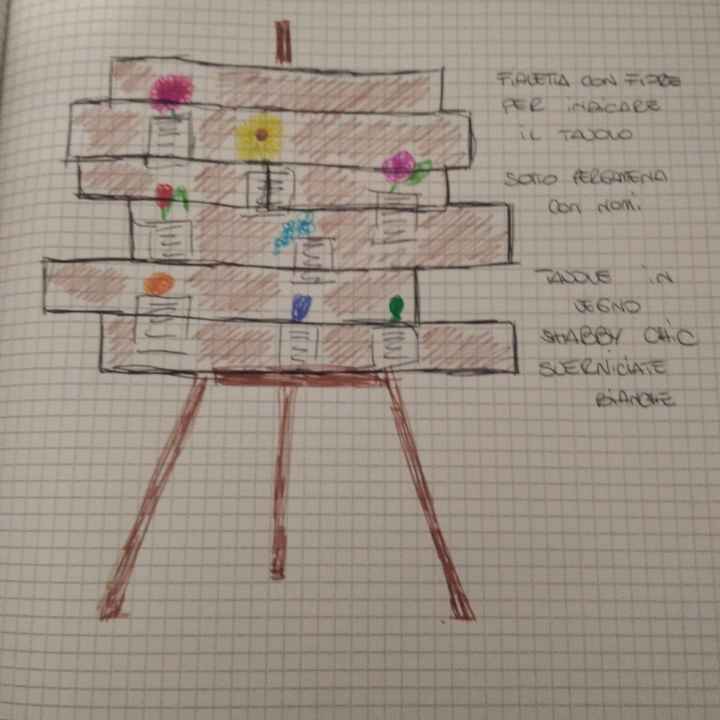 FIALETTA CON FIORE
PER INDICARE
IL TAVOLO
SOTTO PERGAMENA
CON NOMI
TAVOLE IN
LEGNO
SHABBY CHIC
SVERNICIATE
BIANCHE